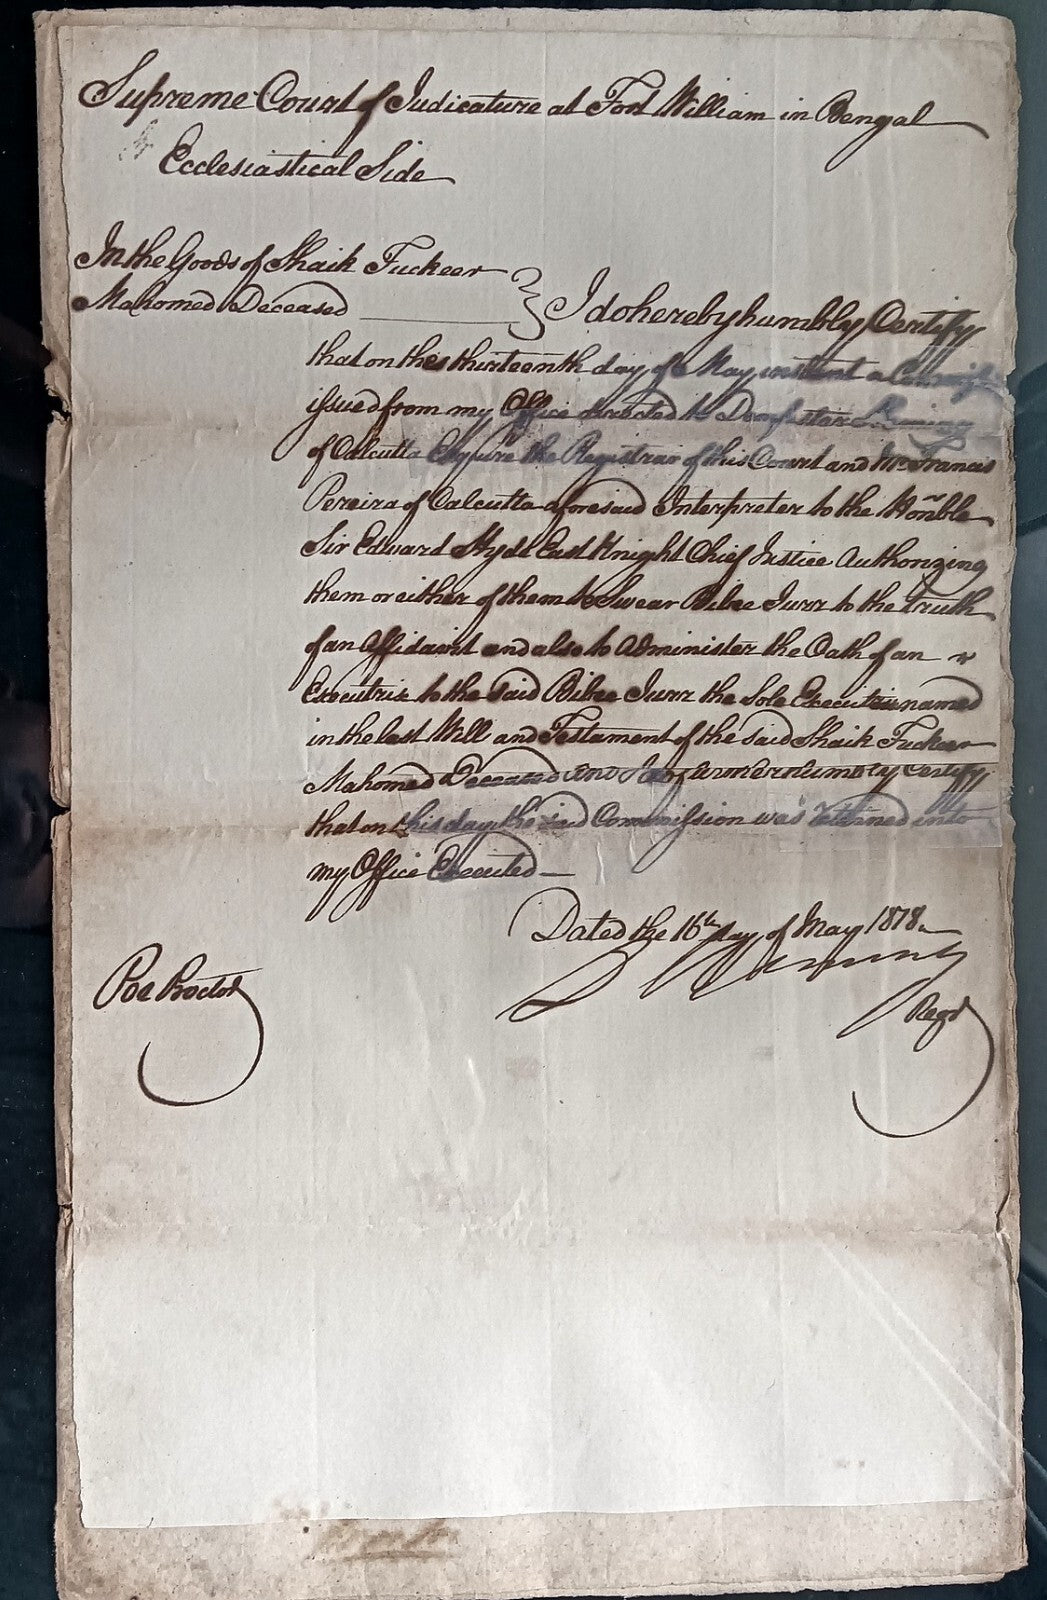 Supreme Court of Judicature at Fort William in Bengal
Ecclesiastical Side
In the Goods of Shaik Fuckeer
Mahomed Deceased
I do hereby humbly Certify
that on the thirteenth day of May instant a
issued from my Office directed to Dempster
of Calcutta Esquire the Registrar of this Court and Mr Francis
Pereira of Calcutta aforesaid Interpreter to the Honble
Sir Edward Hyde East Knight Chief Justice Authorizing
them or either of them to Swear Bibee Jurr to the truth
of an Affidavit and also to Administer the Oath of an
Executrix to the said Bibee Jurr the Sole Executrix named
in the last Will and Testament of the said Shaik Fuckeer
Mahomed Deceased And I do further humbly Certify
that on this day the said Commission was returned into
my Office Executed
Dated the 16th day of May 1818
Poe Proctor
Regr